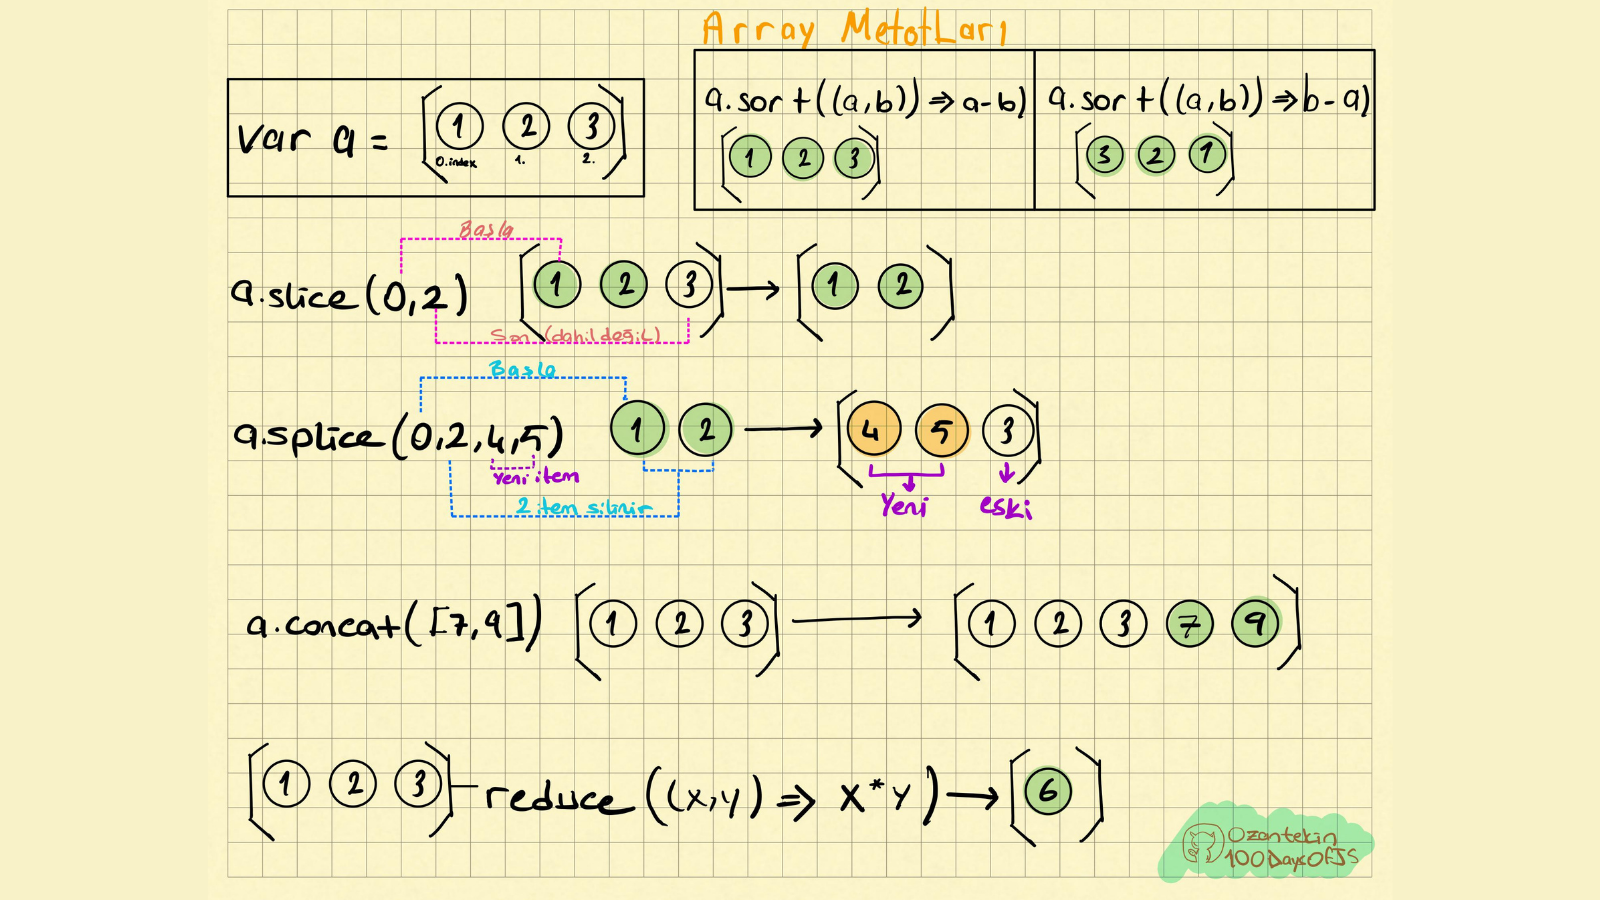 Array Metotları
var a = [1 2 3]
0.index 1. 2.
a.sort((a,b)) => a-b)
[1 2 3]
a.sort((a,b)) => b-a)
[3 2 1]
Başla
a.slice(0,2) [1 2 3] → [1 2]
Son (dahil değil)
Başla
a.splice(0,2,4,5) 1 2 → [4 5 3]
Yeni item
2 item silinir
Yeni eski
a.concat([7,9]) [1 2 3] → [1 2 3 7 9]
[1 2 3] reduce((x,y) => x*y) → [6]
Ozantekin
100DaysOfJS